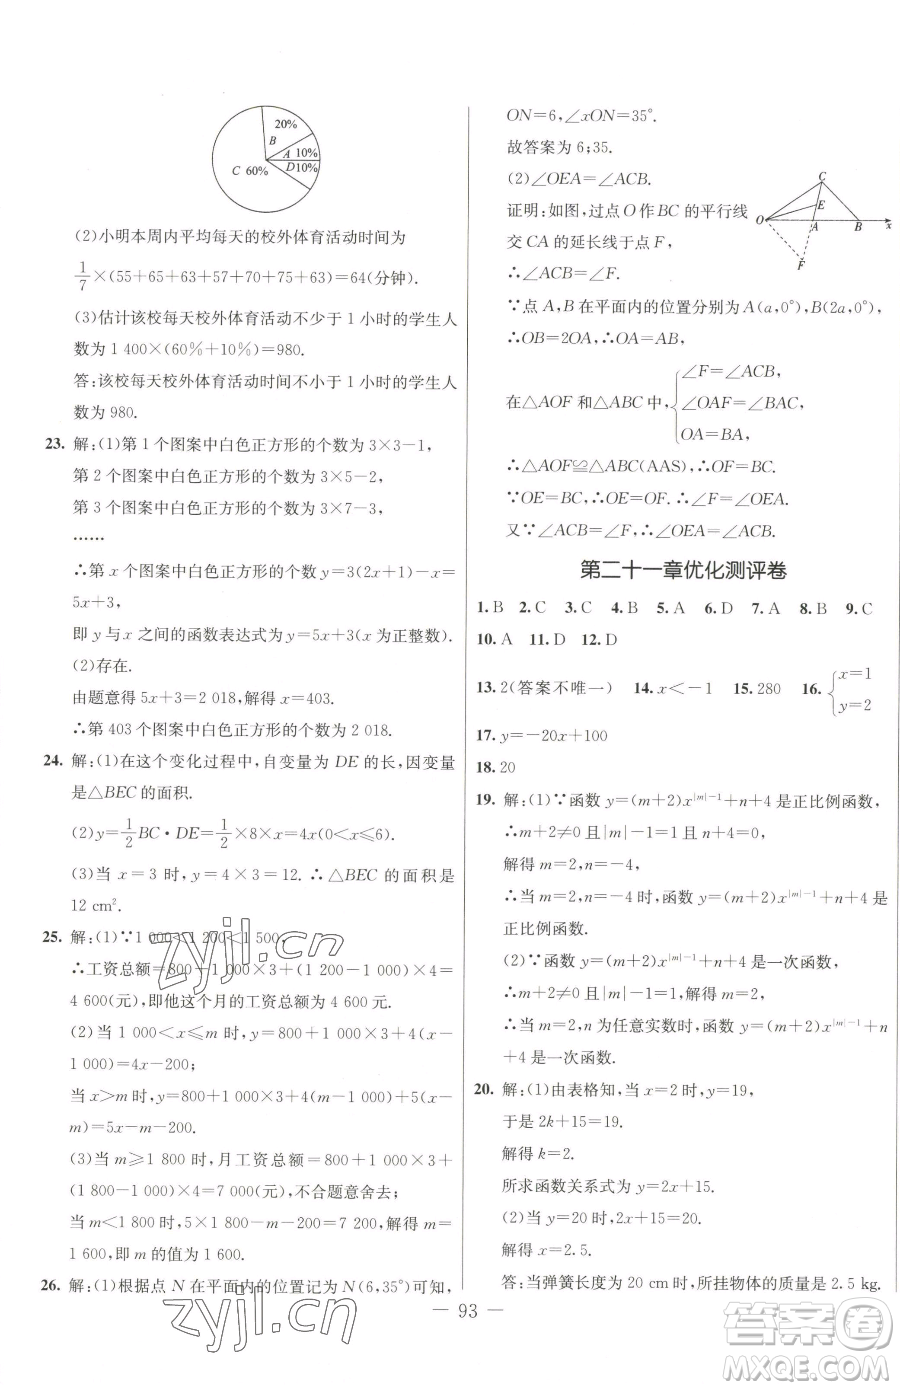 20%
B
A 10%
C 60% D10%
(2)小明本周内平均每天的校外体育活动时间为
1/7×(55+65+63+57+70+75+63)=64(分钟).
(3)估计该校每天校外体育活动不少于 1 小时的学生人
数为 1 400×(60%+10%)=980.
答:该校每天校外体育活动时间不小于 1 小时的学生人
数为 980.
23. 解:(1)第 1 个图案中白色正方形的个数为 3×3-1,
第 2 个图案中白色正方形的个数为 3×5-2,
第 3 个图案中白色正方形的个数为 3×7-3,
……
∴第 x 个图案中白色正方形的个数为 y=3(2x+1)-x=
5x+3,
即 y 与 x 之间的函数表达式为 y=5x+3(x 为正整数).
(2)存在.
由题意得 5x+3=2 018,解得 x=403.
∴第 403 个图案中白色正方形的个数为 2 018.
24. 解:(1)在这个变化过程中,自变量为 DE 的长,因变量
是△BEC 的面积.
(2)y=1/2 BC·DE=1/2×8×x=4x(0<x≤6).
(3)当 x=3 时,y=4×3=12. ∴△BEC 的面积是
12 cm².
25. 解:(1)∵1 000<1 200<1 500,
∴工资总额=800+1 000×3+(1 200-1 000)×4=
4 600(元),即他这个月的工资总额为 4 600 元.
(2)当 1 000<x≤m 时,y=800+1 000×3+4(x-
1 000)=4x-200;
当 x>m 时,y=800+1 000×3+4(m-1 000)+5(x-m)
=5x-m-200.
(3)当 m≥1 800 时,月工资总额=800+1 000×3+
(1 800-1 000)×4=7 000(元),不合题意舍去;
当 m<1 800 时,5×1 800-m-200=7 200,解得 m=
1 600,即 m 的值为 1 600.
26. 解:(1)根据点 N 在平面内的位置记为 N(6,35°)可知,
ON=6,∠xON=35°.
故答案为 6;35.
(2)∠OEA=∠ACB.
证明:如图,过点 O 作 BC 的平行线
交 CA 的延长线于点 F,
C
E
O A B x
F
∴∠F=∠ACB.
∵点 A,B 在平面内的位置分别为 A(a,0°),B(2a,0°),
∴OB=2OA,∴OA=BA.
在△AOF 和△ABC 中,{∠F=∠ACB,
∠OAF=∠BAC,
OA=BA,
∴△AOF≌△ABC(AAS),∴OF=BC.
∵OE=BC,∴OE=OF. ∴∠F=∠OEA.
又∵∠ACB=∠F,∴∠OEA=∠ACB.
第二十一章优化测评卷
1. B 2. C 3. C 4. B 5. A 6. D 7. A 8. B 9. C
10. A 11. D 12. D
13. 2(答案不唯一) 14. x<-1 15. 280 16. {x=1
y=2
17. y=-20x+100
18. 20
19. 解:(1)∵函数 y=(m+2)x^{|m|-1}+n+4 是正比例函数,
∴m+2≠0 且|m|-1=1 且 n+4=0,
解得 m=2,n=-4,
∴当 m=2,n=-4 时,函数 y=(m+2)x^{|m|-1}+n+4 是
正比例函数.
(2)∵函数 y=(m+2)x^{|m|-1}+n+4 是一次函数,
∴m+2≠0 且|m|-1=1,解得 m=2,
∴当 m=2,n 为任意实数时,函数 y=(m+2)x^{|m|-1}+n
+4 是一次函数.
20. 解:(1)由表格知,当 x=2 时,y=19,
于是 2k+15=19.
解得 k=2.
所求函数关系式为 y=2x+15.
(2)当 y=20 时,2x+15=20.
解得 x=2.5.
答:当弹簧长度为 20 cm 时,所挂物体的质量是 2.5 kg.
— 93 —
zyjl.cn
zyjl.cn
答案圈
MXQE.COM